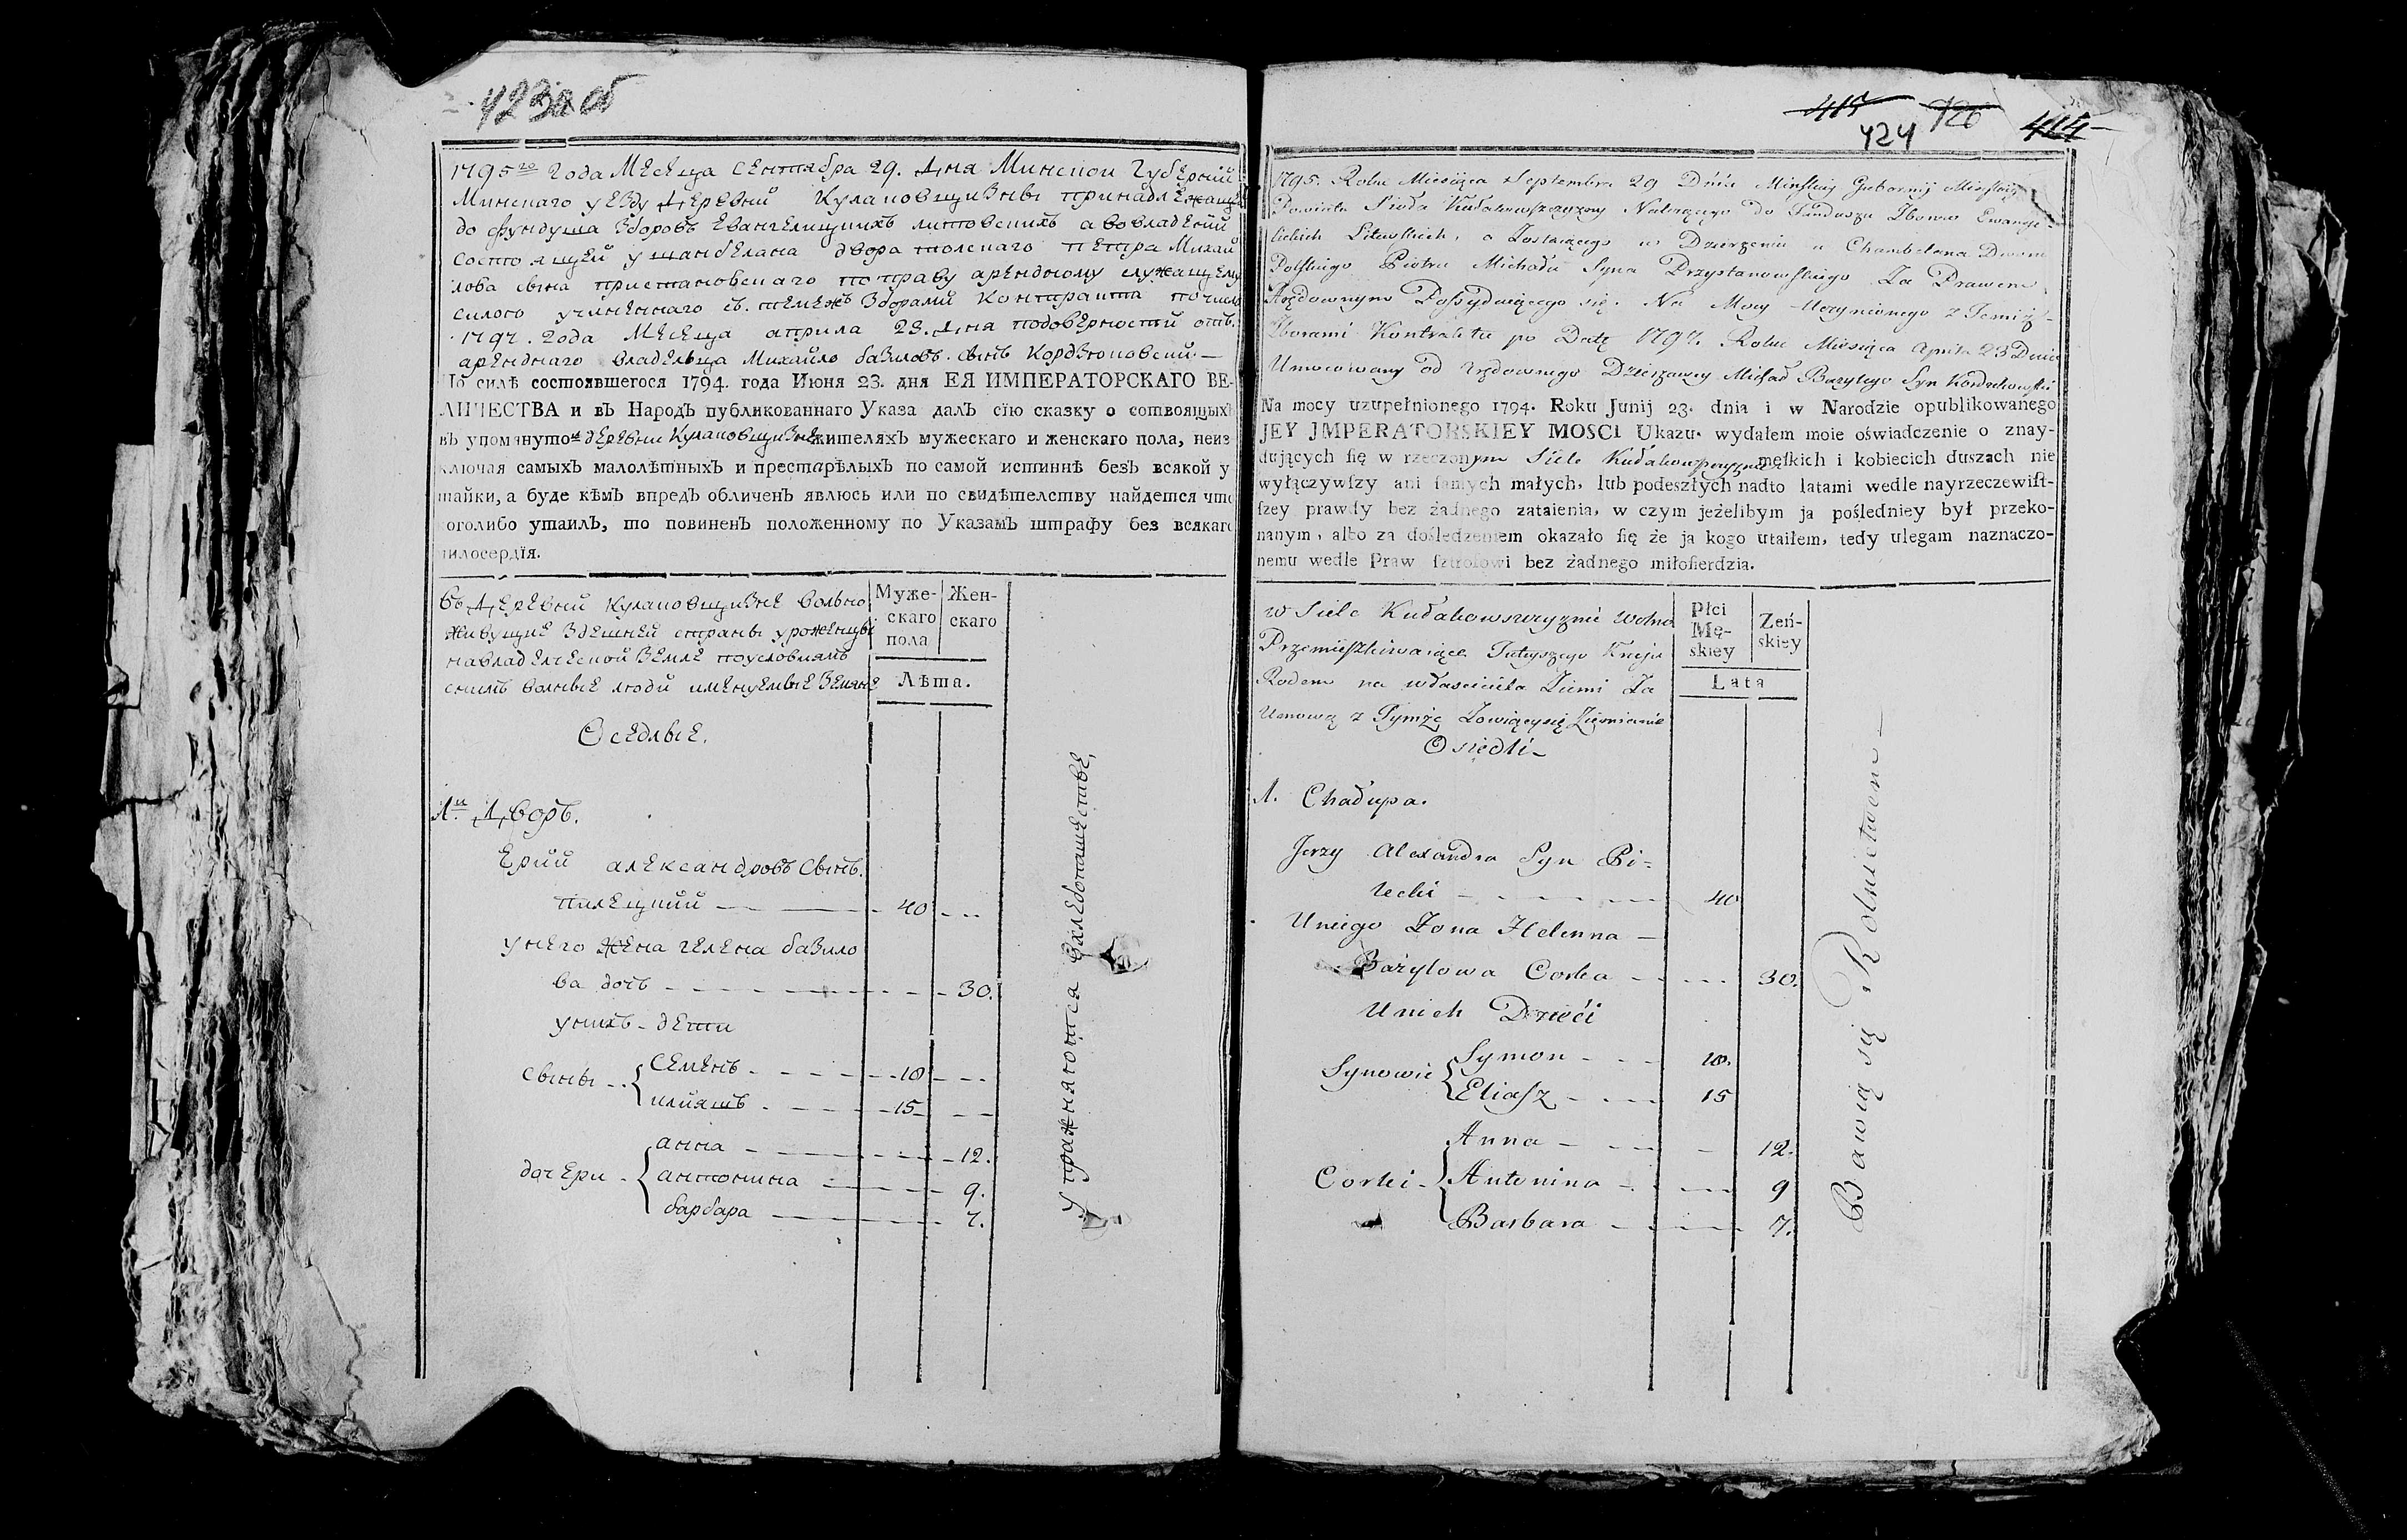 423 об
1795го Года Месеца Сентябра 29. Дня Минской Губерний
Минского уезду Деревни Кулаковщизны принадлежащей
до фундуша Зборовъ Евангелицкихъ литовскихъ а во владений
состоящей у шанбелана двора полского Петра Михай
лова сына пристановского по праву арендному служащему
силою учиненнаго съ темежъ Зборами Контракта по число
1797. Года Месеца априла 23. дня по доверности отъ
аренднаго владельца Михайло базиловъ сынъ Кордзюковский—
По силѣ состоявшегося 1794. года Июня 23. дня ЕЯ ИМПЕРАТОРСКАГО ВЕ-
ЛИЧЕСТВА и въ Народъ публикованнаго Указа далъ сїю сказку о сотвоящыхъ
въ упомянутой деревни Кулаковщизне жителяхъ мужескаго и женскаго пола, неиз
ключая самыхъ малолѣтныхъ и престарѣлыхъ по самой истиннѣ безъ всякой у
тайки, а буде кѣмъ впредъ обличенъ явлюсь или по свидѣтелству найдется что
коголибо утаилъ, то повиненъ положенному по Указамъ штрафу без всякаго
милосердїя.
Въ Деревни Кулаковщизне вольно
живущие здешней страны уроженцы
на владелческой земле по условиямъ
снимъ вольные люди именуемые земяне
Муже-
скаго
пола
Жен-
скаго
Лѣта.
Оседлые.
1й Дворъ.
Ерий александровъ сынъ
пилецкий — 40
у него жена гелена базило
ва дочъ — 30.
у нихъ - дети
сыны { Семенъ — 10
илияшъ — 15
дочери { анна — 12.
антонина — 9.
барбара — 7.
Упражняются в хлебопашестве
415 426 414
424
1795. Roku Miesiąca Septembra 29 Dnia Minskiey Gubernij Minskiego
Powiatu Sioła Kułakowszczyzny Należącego do Funduszu Zborow Ewange-
lickich Litewskich, a Zostaiącego w Dzierżeniu u Chambelana Dworu
Polskiego Piotra Michała Syna Przystanowskiego Za Prawem
Arędownym Possyduiącego się. Na Mocy Uczynionego z Temiż-
Zborami Kontraktu po Datę 1797. Roku Miesiąca Aprila 23 Dnia
Umocowany od Arędownego Dzierżawcy Michał Bazylego Syn Kordzikowski
Na mocy uzupełnionego 1794. Roku Junij 23. dnia i w Narodzie opublikowanego
JEY JMPERATORSKIEY MOSCI Ukazu. wydałem moie oświadczenie o znay-
dujących ſię w rzeczonym Siele Kułakowszczyznie męſkich i kobiecich duszach nie
wyłączywſzy ani ſamych małych, lub podeszłych nadto latami wedle nayrzeczewiſt-
ſzey prawdy bez żadnego zataienia, w czym jeżelibym ja pośledniey był przeko-
nanym, albo za dośledzeniem okazało ſię że ja kogo utaiłem, tedy ulegam naznaczo-
nemu wedle Praw ſztrofowi bez żadnego miłoſierdzia.
w Siele Kułakowszczyznie wolno
Przemieszkiwaiące Tutayszego Kraju
Rodem na właściciela Ziemi Za
Umową z Tymże Zowiący się Ziemianie
płci
Mę-
skiey
Zeń-
skiey
Lata
Osiedli—
1. Chałupa.
Jerzy Alexandra Syn Pi-
lecki — 40
U niego Żona Helenna —
Bazylowa Corka — 30.
U nich Dzieci
Synowie { Symon — 10.
Eliasz — 15
Corki { Anna — 12.
Antonina — 9
Barbara — 7.
Bawią się Rolnictwem —